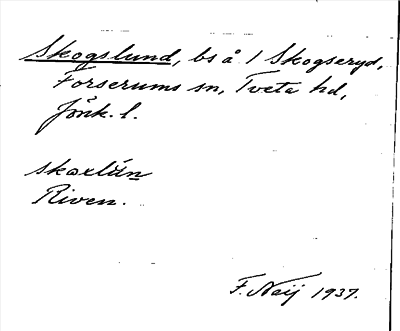 Skogslund, bs å 1 Skogseryd,
Forserums sn, Tveta hd,
Jönk. l.
skoxlún
Riven.
F. Neij 1937.